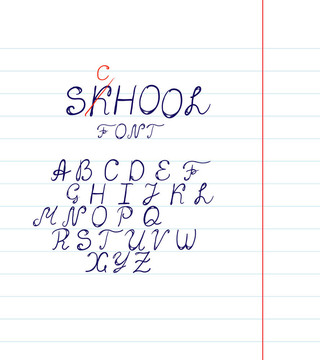 C
SKHOOL
FONT
A B C D E F
G H I J K L
M N O P Q
R S T U V W
X Y Z